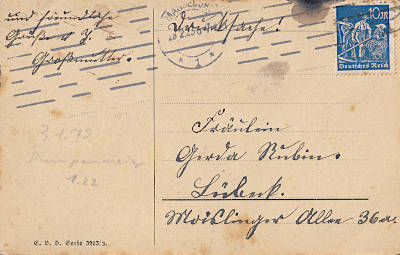 und freundliche
Grüße v. J.
Großmutter.
Drucksache!
10 M
Deutsches Reich
Fräulein
Gerda Rubin.
Lübeck.
Moislinger Allee 36a.
3.1.73
1.22
E. B. D. Serie 3903/5.